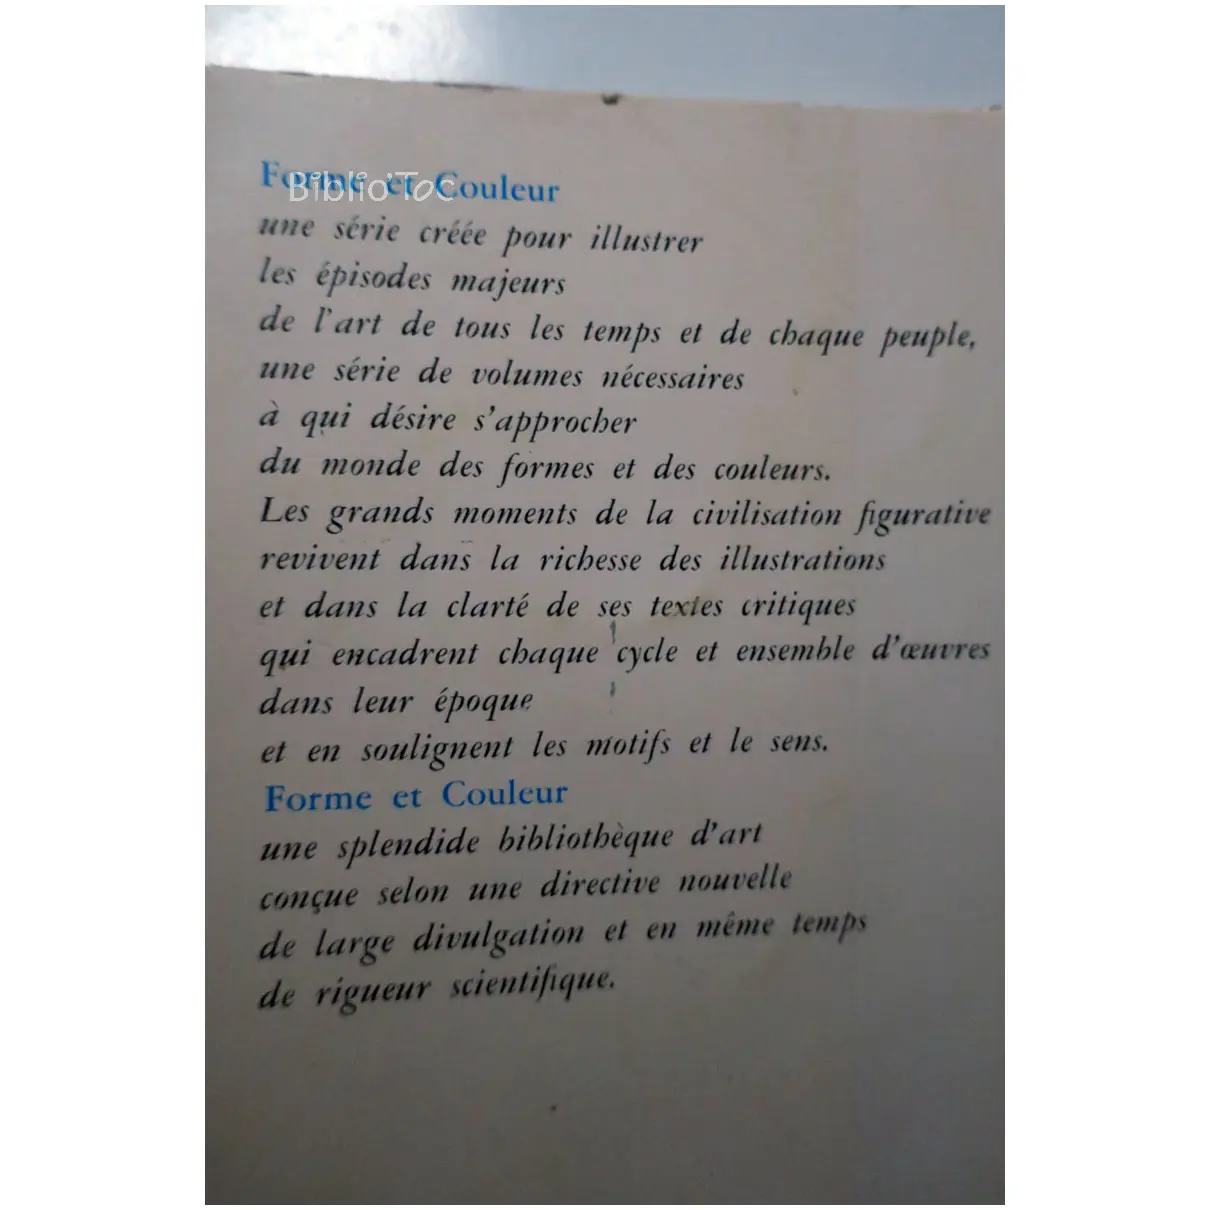 Forme et Couleur
Biblio'Toc
une série créée pour illustrer
les épisodes majeurs
de l'art de tous les temps et de chaque peuple,
une série de volumes nécessaires
à qui désire s'approcher
du monde des formes et des couleurs.
Les grands moments de la civilisation figurative
revivent dans la richesse des illustrations
et dans la clarté de ses textes critiques
qui encadrent chaque cycle et ensemble d'œuvres
dans leur époque
et en soulignent les motifs et le sens.
Forme et Couleur
une splendide bibliothèque d'art
conçue selon une directive nouvelle
de large divulgation et en même temps
de rigueur scientifique.